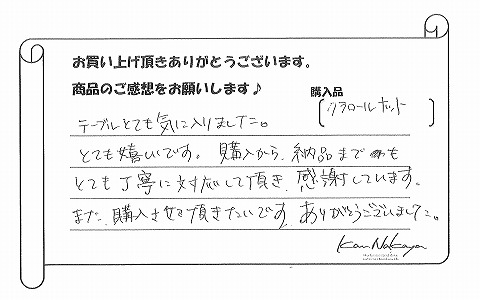 お買い上げ頂きありがとうございます。
商品のご感想をお願いします♪
購入品
テーブルとても気に入りました。
とても嬉しいです。購入から、納品までも
とても丁寧に対応して頂き、感謝しています。
また、購入させて頂きたいです。ありがとうございました。
Kan Nakaya